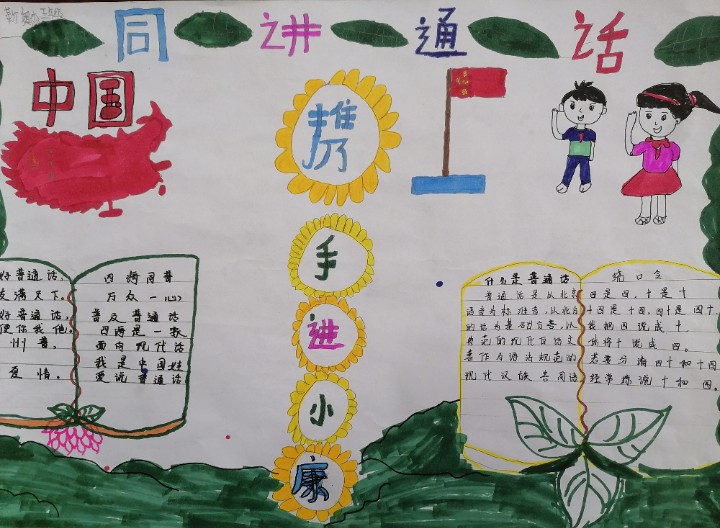 同讲通话
中国
携
手
进
小
康
好普通话，
友满天下。
好普通话，
便你我他。
州普。
友情。
四海同普
万众一心
普及普通话
四海是一家
面向现代话
我是中国娃
爱说普通话
什么是普通话
普通话是从北京
语音为标准音，从北方
的话为基础方言，从
典范的现代白话文
著作为语法规范的
现代汉族共同语
绕口令
四是四，十是十
十四是十四，四十是四十
我把四说成十，
你将十说成四。
若要分清四十和十四
经常练说十和四。